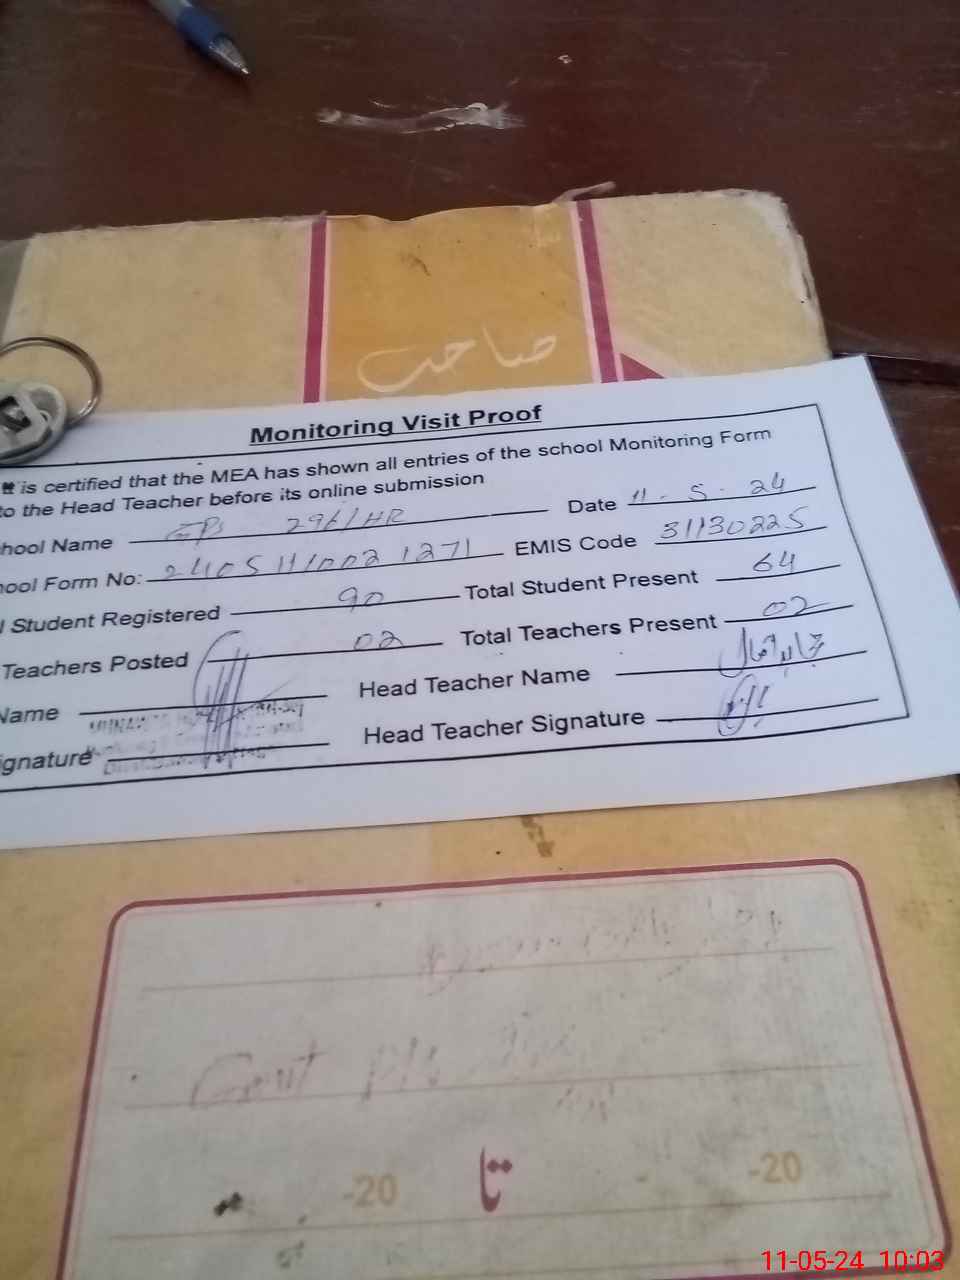 صاحب
Monitoring Visit Proof
It is certified that the MEA has shown all entries of the school Monitoring Form
to the Head Teacher before its online submission
hool Name GPS 296/HR Date 11-5-24
hool Form No: 2405H/0021271 EMIS Code 31130225
l Student Registered 90 Total Student Present 64
Teachers Posted 02 Total Teachers Present 02
Name Head Teacher Name
ignature Head Teacher Signature
Govt
-20 تا - -20
11-05-24 10:03